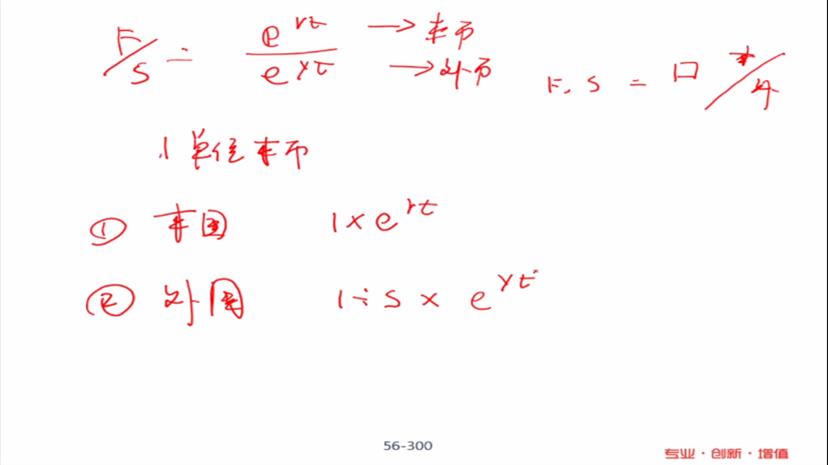 F/S = e^{rt} / e^{yt} → 本币 → 外币
F, S = 口 本/外
1 单位本币
① 本国 1×e^{rt}
② 外国 1÷S × e^{yt}
56-300
专业·创新·增值